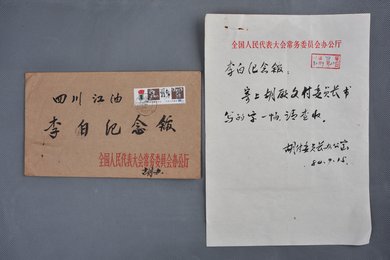 四川 江油
李白纪念馆
全国人民代表大会常务委员会办公厅
全国人民代表大会常务委员会办公厅
李白纪念馆：
寄上胡厥文付委员长书
写的字一幅，请查收。
胡付委员长办公室